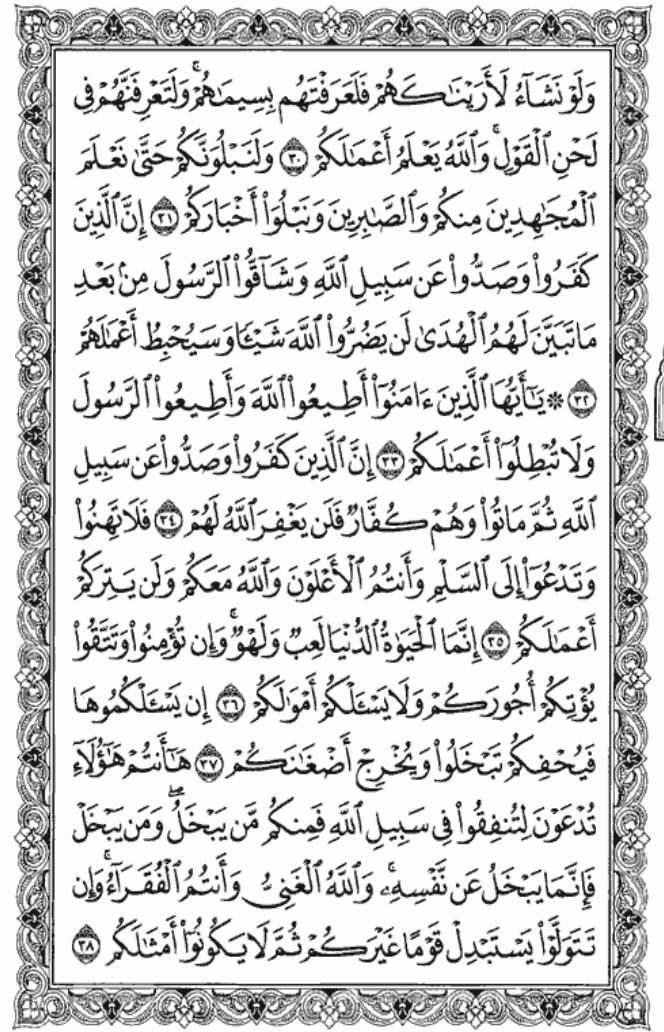 وَلَوْ نَشَآءُ لَأَرَيْنَـٰكَهُمْ فَلَعَرَفْتَهُم بِسِيمَـٰهُمْ ۚ وَلَتَعْرِفَنَّهُمْ فِى
لَحْنِ ٱلْقَوْلِ ۚ وَٱللَّهُ يَعْلَمُ أَعْمَـٰلَكُمْ ٣٠ وَلَنَبْلُوَنَّكُمْ حَتَّىٰ نَعْلَمَ
ٱلْمُجَـٰهِدِينَ مِنكُمْ وَٱلصَّـٰبِرِينَ وَنَبْلُوَا۟ أَخْبَارَكُمْ ٣١ إِنَّ ٱلَّذِينَ
كَفَرُوا۟ وَصَدُّوا۟ عَن سَبِيلِ ٱللَّهِ وَشَآقُّوا۟ ٱلرَّسُولَ مِنۢ بَعْدِ
مَا تَبَيَّنَ لَهُمُ ٱلْهُدَىٰ لَن يَضُرُّوا۟ ٱللَّهَ شَيْـًٔا وَسَيُحْبِطُ أَعْمَـٰلَهُمْ
٣٢ ۞ يَـٰٓأَيُّهَا ٱلَّذِينَ ءَامَنُوٓا۟ أَطِيعُوا۟ ٱللَّهَ وَأَطِيعُوا۟ ٱلرَّسُولَ
وَلَا تُبْطِلُوٓا۟ أَعْمَـٰلَكُمْ ٣٣ إِنَّ ٱلَّذِينَ كَفَرُوا۟ وَصَدُّوا۟ عَن سَبِيلِ
ٱللَّهِ ثُمَّ مَاتُوا۟ وَهُمْ كُفَّارٌ فَلَن يَغْفِرَ ٱللَّهُ لَهُمْ ٣٤ فَلَا تَهِنُوا۟
وَتَدْعُوٓا۟ إِلَى ٱلسَّلْمِ وَأَنتُمُ ٱلْأَعْلَوْنَ وَٱللَّهُ مَعَكُمْ وَلَن يَتِرَكُمْ
أَعْمَـٰلَكُمْ ٣٥ إِنَّمَا ٱلْحَيَوٰةُ ٱلدُّنْيَا لَعِبٌ وَلَهْوٌ ۚ وَإِن تُؤْمِنُوا۟ وَتَتَّقُوا۟
يُؤْتِكُمْ أُجُورَكُمْ وَلَا يَسْـَٔلْكُمْ أَمْوَٰلَكُمْ ٣٦ إِن يَسْـَٔلْكُمُوهَا
فَيُحْفِكُمْ تَبْخَلُوا۟ وَيُخْرِجْ أَضْغَـٰنَكُمْ ٣٧ هَـٰٓأَنتُمْ هَـٰٓؤُلَآءِ
تُدْعَوْنَ لِتُنفِقُوا۟ فِى سَبِيلِ ٱللَّهِ فَمِنكُم مَّن يَبْخَلُ ۖ وَمَن يَبْخَلْ
فَإِنَّمَا يَبْخَلُ عَن نَّفْسِهِۦ ۚ وَٱللَّهُ ٱلْغَنِىُّ وَأَنتُمُ ٱلْفُقَرَآءُ ۚ وَإِن
تَتَوَلَّوْا۟ يَسْتَبْدِلْ قَوْمًا غَيْرَكُمْ ثُمَّ لَا يَكُونُوٓا۟ أَمْثَـٰلَكُم ٣٨